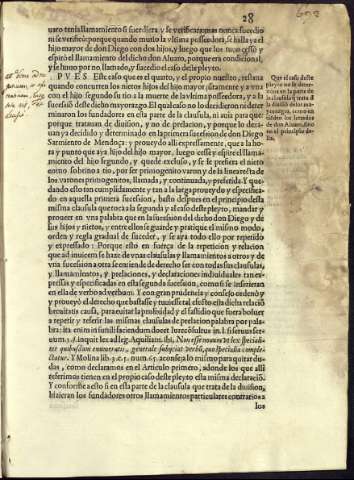 28
uaro tenia llamamiento si sucediera y se verificara mas nunca sucedio
ni se verificò: porque quando murio la vltima posseedora, se halla y el
hijo mayor de don Diego con dos hijos, y luego que los tuuo cessò y
espirò el llamamiento del dicho don Aluaro, porque era condicional,
y assi no pudo ser llamado, y sucedio el caso deste pleyto.
PVES. Este caso que es el quarto, y el proprio nuestro, restaua
quando concurren los nietos hijos del hijo mayor juntamente y a vna
con el hijo segundo su tio a la muerte de la vltima posseedora, y a la
sucessiõ deste dicho mayorazgo. El qual caso no lo decidieron ni determinaron
los fundadores en esta parte de la clausula, ni auia para que:
porque tratauan de diuision, y no de prelacion, y porque lo dexauan
ya decidido y determinado en la primera sucession de don Diego
Sarmiento de Mendoça: y proueydo alli expressamente, que a la hora
y punto que aya hijo del hijo mayor, luego cesse y espire el llamamiento
del hijo segundo, y quede excluso, y se le prefiera el nieto
como sobrino a tio, por ser primogenito varon y de la linea recta de
los varones primogenitos, llamada, y continuada, y preferida. Y quedando
esto tan cumplidamente y tan a la larga proueydo y especificado
en aquella primera sucession, basto despues en el principio desta
misma clausula que toca a la segunda y al caso deste pleyto, mandar y
proueer en vna palabra que en la sucession del dicho don Diego y de
sus hijos y nietos, y entre ellos se guarde y pratique el mismo modo,
orden y regla gradual de suceder, y se aya todo ello por repetido
y expressado: Porque esto en fuerça de la repeticion y relacion
que ad inuicem se haze de vnas clausulas y llamamientos a otros y de
vna sucession a otra se entiende de derecho ser con todas las clausulas,
y llamamientos, y prelaciones, y declaraciones indiuiduales tan expressas
y especificadas en esta segunda sucession, como si se inserieran
en ella de verbo ad verbum. Y con gran prudencia y consejo ordenò y
y proueyò el derecho que bastasse y tuuiesse tal efecto esta dicha relaciõ
breuitatis causa, para euitar la prolixidad y el fastidio que fuera boluer
a repetir y referir las mismas clausulas de prelacion palabra por palabra:
ita enim in simili faciendum docet Iurecõsultus in l. si seruus seruum.
§. inquit lex ad leg. Aquiliam. ibi. Non esse nouum vt lex specialibus
quibusdam enumeratis, generale subijciat verbũ, quo specialia complectatur.
Y Molina lib. 3. c. 5. num. 63. aconseja lo mismo para quitar dudas,
como declaramos en el Articulo primero, adonde los que alli
referimos tienen en el propio caso deste pleyto esta misma declaraciõ.
Y conforme a esto si en esta parte de la clausula que trata de la diuision,
hizieran los fundadores otros llamamientos particulares contrarios a
los
Que el caso deste
pleyto no le determinaron
en la parte de
la clausula q̃ trata de la
diuisiõ
los fundadores
de don Aluaro, sino
en el principio della.